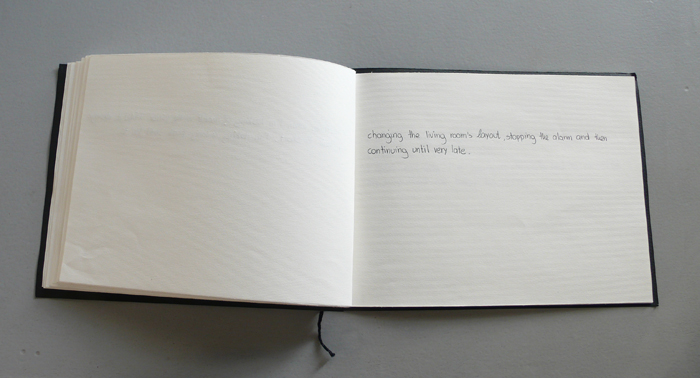 changing the living room's layout, stopping the alarm and then
continuing until very late.